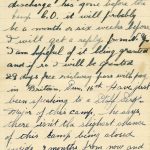 discharge has gone before the
camp C.O. it will probably
be a month or six weeks before
I will get a reply from it. I
am hopeful of it being granted
and if so I will be granted
28 days free railway pass with pay
in Britain. Sun. 16th Have just
been speaking to a Staff Sergt-
Major of our camp. He says
there isn't the slightest chance
of this Camp being closed
under 2 months from now and